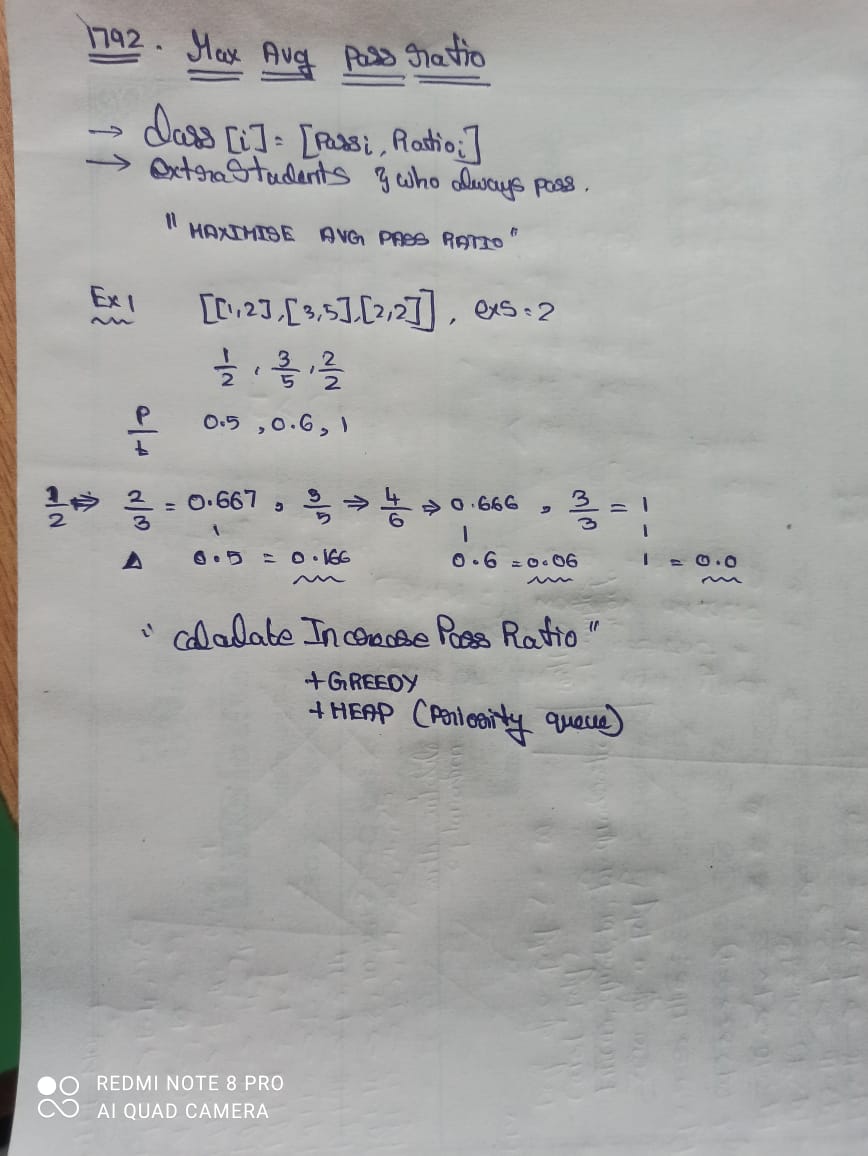 1792. Max Avg pass ratio
→ Class [i] = [Passi, Ratioi]
→ extraStudents } who always pass.
"MAXIMISE AVG PASS RATIO"
Ex1 [[1,2],[3,5],[2,2]], exs = 2
1/2, 3/5, 2/2
P/t 0.5, 0.6, 1
1/2 ⇒ 2/3 = 0.667, 3/5 ⇒ 4/6 ⇒ 0.666, 3/3 = 1
Δ 0.5 = 0.166 0.6 = 0.06 1 = 0.0
"Calculate Increase Pass Ratio"
+GREEDY
+HEAP (Periority queue)
REDMI NOTE 8 PRO
AI QUAD CAMERA